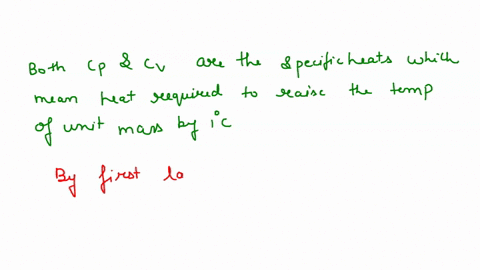 Both Cp & Cv are the specific heats which
mean heat required to raise the temp
of unit mass by 1°C
By first la